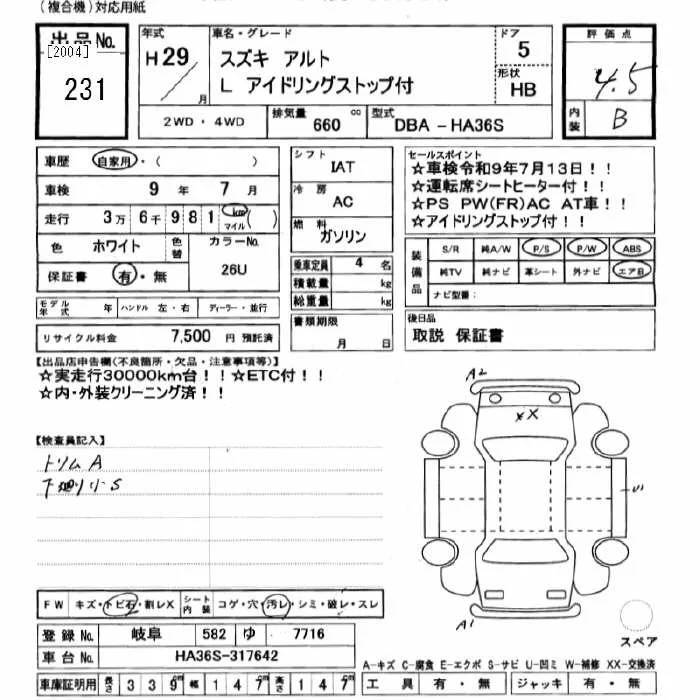 (複合機)対応用紙
出品No.
[2004]
231
年式
H29
月
車名・グレード
スズキ アルト
L アイドリングストップ付
ドア
5
形状
HB
評価点
4.5
内装
B
2WD・4WD
排気量
660
cc
型式
DBA-HA36S
車歴
自家用・( )
車検
9年7月
走行
3万6千981
km
マイル
( )
色
ホワイト
色替
カラーNo.
26U
保証書
有・無
モデル年式
年
ハンドル 左・右
ディーラー・並行
リサイクル料金
7,500円 預託済
シフト
IAT
冷房
AC
燃料
ガソリン
乗車定員
4名
積載量
kg
総重量
kg
書類期限
月 日
セールスポイント
☆車検令和9年7月13日!!
☆運転席シートヒーター付!!
☆PS PW(FR)AC AT車!!
☆アイドリングストップ付!!
装備品
S/R 純A/W P/S P/W ABS
純TV 純ナビ 革シート 外ナビ エアB
ナビ型番:
後日品
取説 保証書
【出品店申告欄(不良箇所・欠品・注意事項等)】
☆実走行30000km台!!☆ETC付!!
☆内・外装クリーニング済!!
【検査員記入】
トリムA
下廻り小S
A2
XX
U1
A1
スペア
FW
キズ・トビ石・割レX
2
シート内装
コゲ・穴・汚レ・シミ・破レ・スレ
登録No.
岐阜 582 ゆ 7716
車台No.
HA36S-317642
A-キズ C-腐食 E-エクボ S-サビ U-凹ミ W-補修 XX-交換済
車庫証明用
長さ 339 幅 147 高さ 147
工具 有・無 ジャッキ 有・無